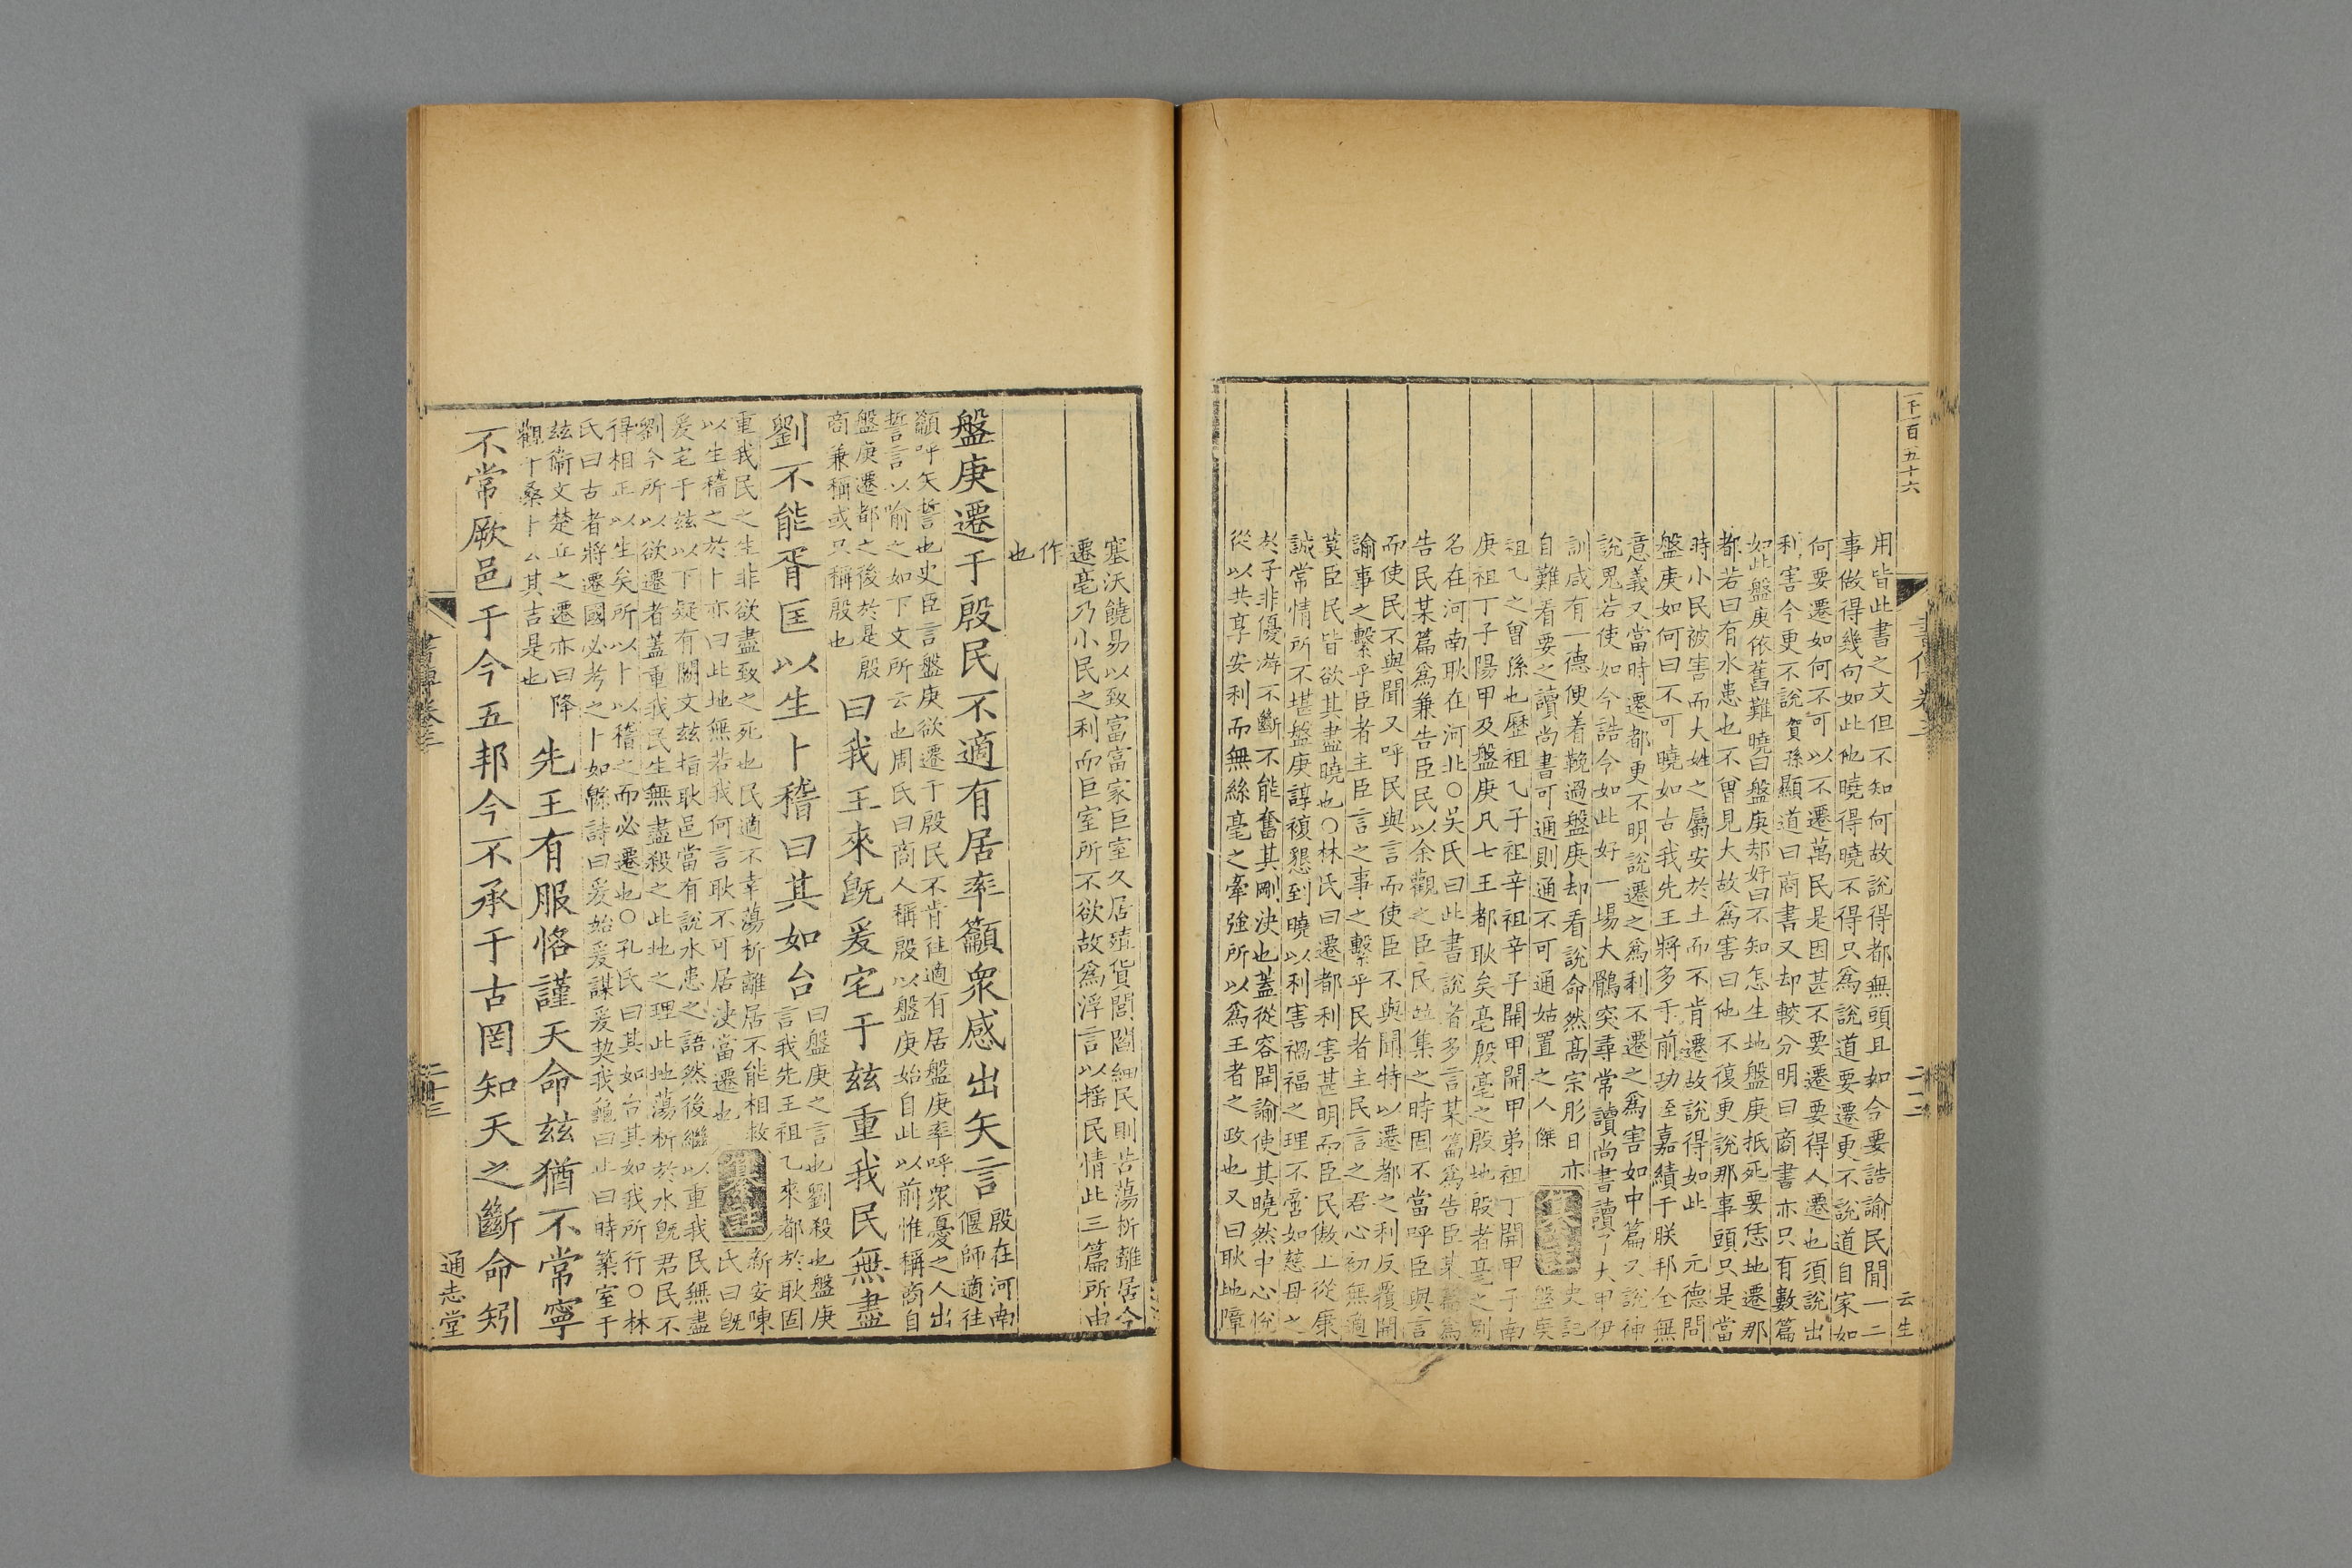 用皆此書之文但不知何故說得都無頭且如今要誥諭民間一二
事做得幾句如此他曉得曉不得只爲說道要遷更不說道自家如
何要遷如何不可以不遷萬民是因甚不要遷要得人遷也須說出
利害今更不說賀孫顯道曰商書又却較分明曰商書亦只有數篇
如此盤庚依舊難曉曰盤庚却好曰不知怎生地盤庚抵死要恁地遷那
都若曰有水患也不曾見大故爲害曰他不復更說那事頭只是當
時小民被害而大姓之屬安於土而不肯遷故說得如此 元德問
盤庚如何曰不可曉如古我先王將多于前功至嘉績于朕邦全無
意義又當時遷都更不明說遷之爲利不遷之爲害如中篇又說神
說鬼若使如今誥令如此好一場大鶻突尋常讀尚書讀了大甲伊
訓咸有一德便着鞔過盤庚却看說命然高宗肜日亦
自難看要之讀尚書可通則通不可通姑置之人傑
史記
盤庚
祖乙之曾孫也歷祖乙子祖辛祖辛子開甲開甲弟祖丁開甲子南
庚祖丁子陽甲及盤庚凡七王都耿矣亳殷亳之殷地殷者亳之別
名在河南耿在河北○吳氏曰此書說者多言某篇爲告臣某篇爲
告民某篇爲兼告臣民以余觀之臣民並集之時固不當呼臣與言
而使民不與聞又呼民與言而使臣不與聞特以遷都之利反覆開
諭事之繫乎臣者主臣言之事之繫乎民者主民言之君心初無適
莫臣民皆欲其盡曉也○林氏曰遷都利害甚明而臣民傲上從康
誠常情所不堪盤庚諄複懇到曉以利害禍福之理不啻如慈母之
於子非優游不斷不能奮其剛決也蓋從容開諭使其曉然中心悅
從以共享安利而無絲毫之牽強所以爲王者之政也又曰耿地障
二十二
云生
塞沃饒易以致富富家巨室久居殖貨閭閻細民則苦蕩析離居今
遷亳乃小民之利而巨室所不欲故爲浮言以搖民情此三篇所由
作
也
盤庚遷于殷民不適有居率籲衆慼出矢言
殷在河南
偃師適往
籲呼矢誓也史臣言盤庚欲遷于殷民不肯往適有居盤庚率呼衆憂之人出
誓言以喻之如下文所云也周氏曰商人稱殷以盤庚始自此以前惟稱商自
盤庚遷都之後於是殷
商兼稱或只稱殷也
曰我王來旣爰宅于茲重我民無盡
劉不能胥匡以生卜稽曰其如台
曰盤庚之言也劉殺也盤庚
言我先王祖乙來都於耿固
重我民之生非欲盡致之死也民適不幸蕩析離居不能相救
以生稽之於卜亦曰此地無若我何言耿不可居決當遷也
新安陳
氏曰旣
爰宅于茲以下疑有闕文茲指耿邑當有說水患之語然後繼以重我民無盡
劉今所以欲遷者蓋重我民生無盡殺之此地之理此地蕩析於水旣君民不
得相正以生矣所以卜以稽之而必遷也○孔氏曰其如台其如我所行○林
氏曰古者將遷國必考之卜如緜詩曰爰始爰謀爰契我龜曰止曰時築室于
茲衞文楚丘之遷亦曰降
觀于桑卜云其吉是也
先王有服恪謹天命茲猶不常寧
不常厥邑于今五邦今不承于古罔知天之斷命矧
書傳卷三
二十三
通志堂